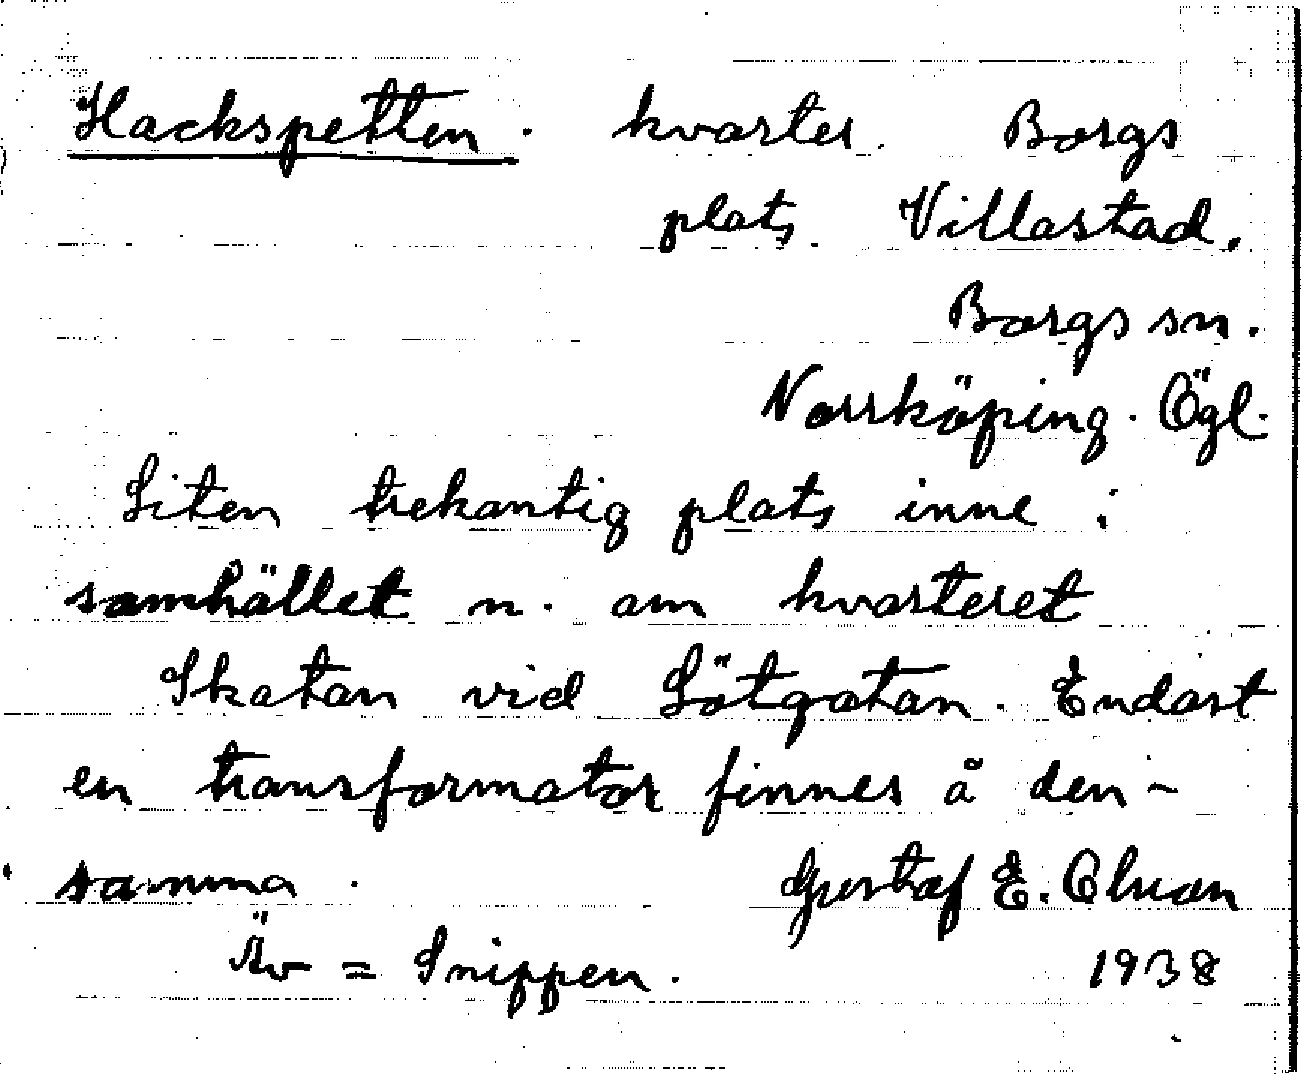 Hackspetten. kvarter. Borgs
plats. Villastad.
Borgs sn.
Norrköping. Ögl.
Liten trekantig plats inne i
samhället n. om kvarteret
Skatan vid Götgatan. Endast
en transformator finnes å den-
samma. Gustaf E. Olson
Äv = Snippen. 1938